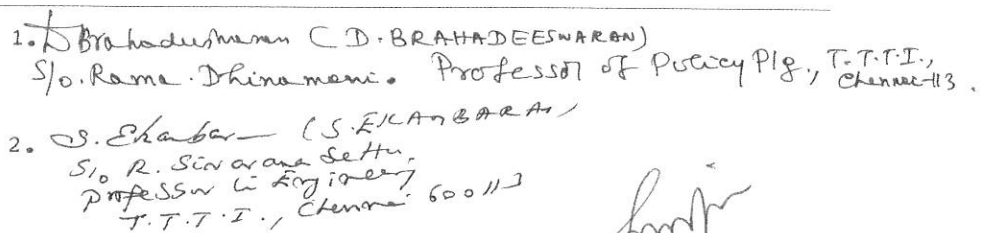 1. D Brahadeeswaran (D. BRAHADEESWARAN)
S/o. Rama. Dhinamani. Professor of Policy Plg., T.T.T.I., Chennai-113.
2. S. Ekambar (S. EKAMBARAM)
S/o R. Sivarama Settu,
Professor in Engineering
T.T.T.I., Chennai 600113